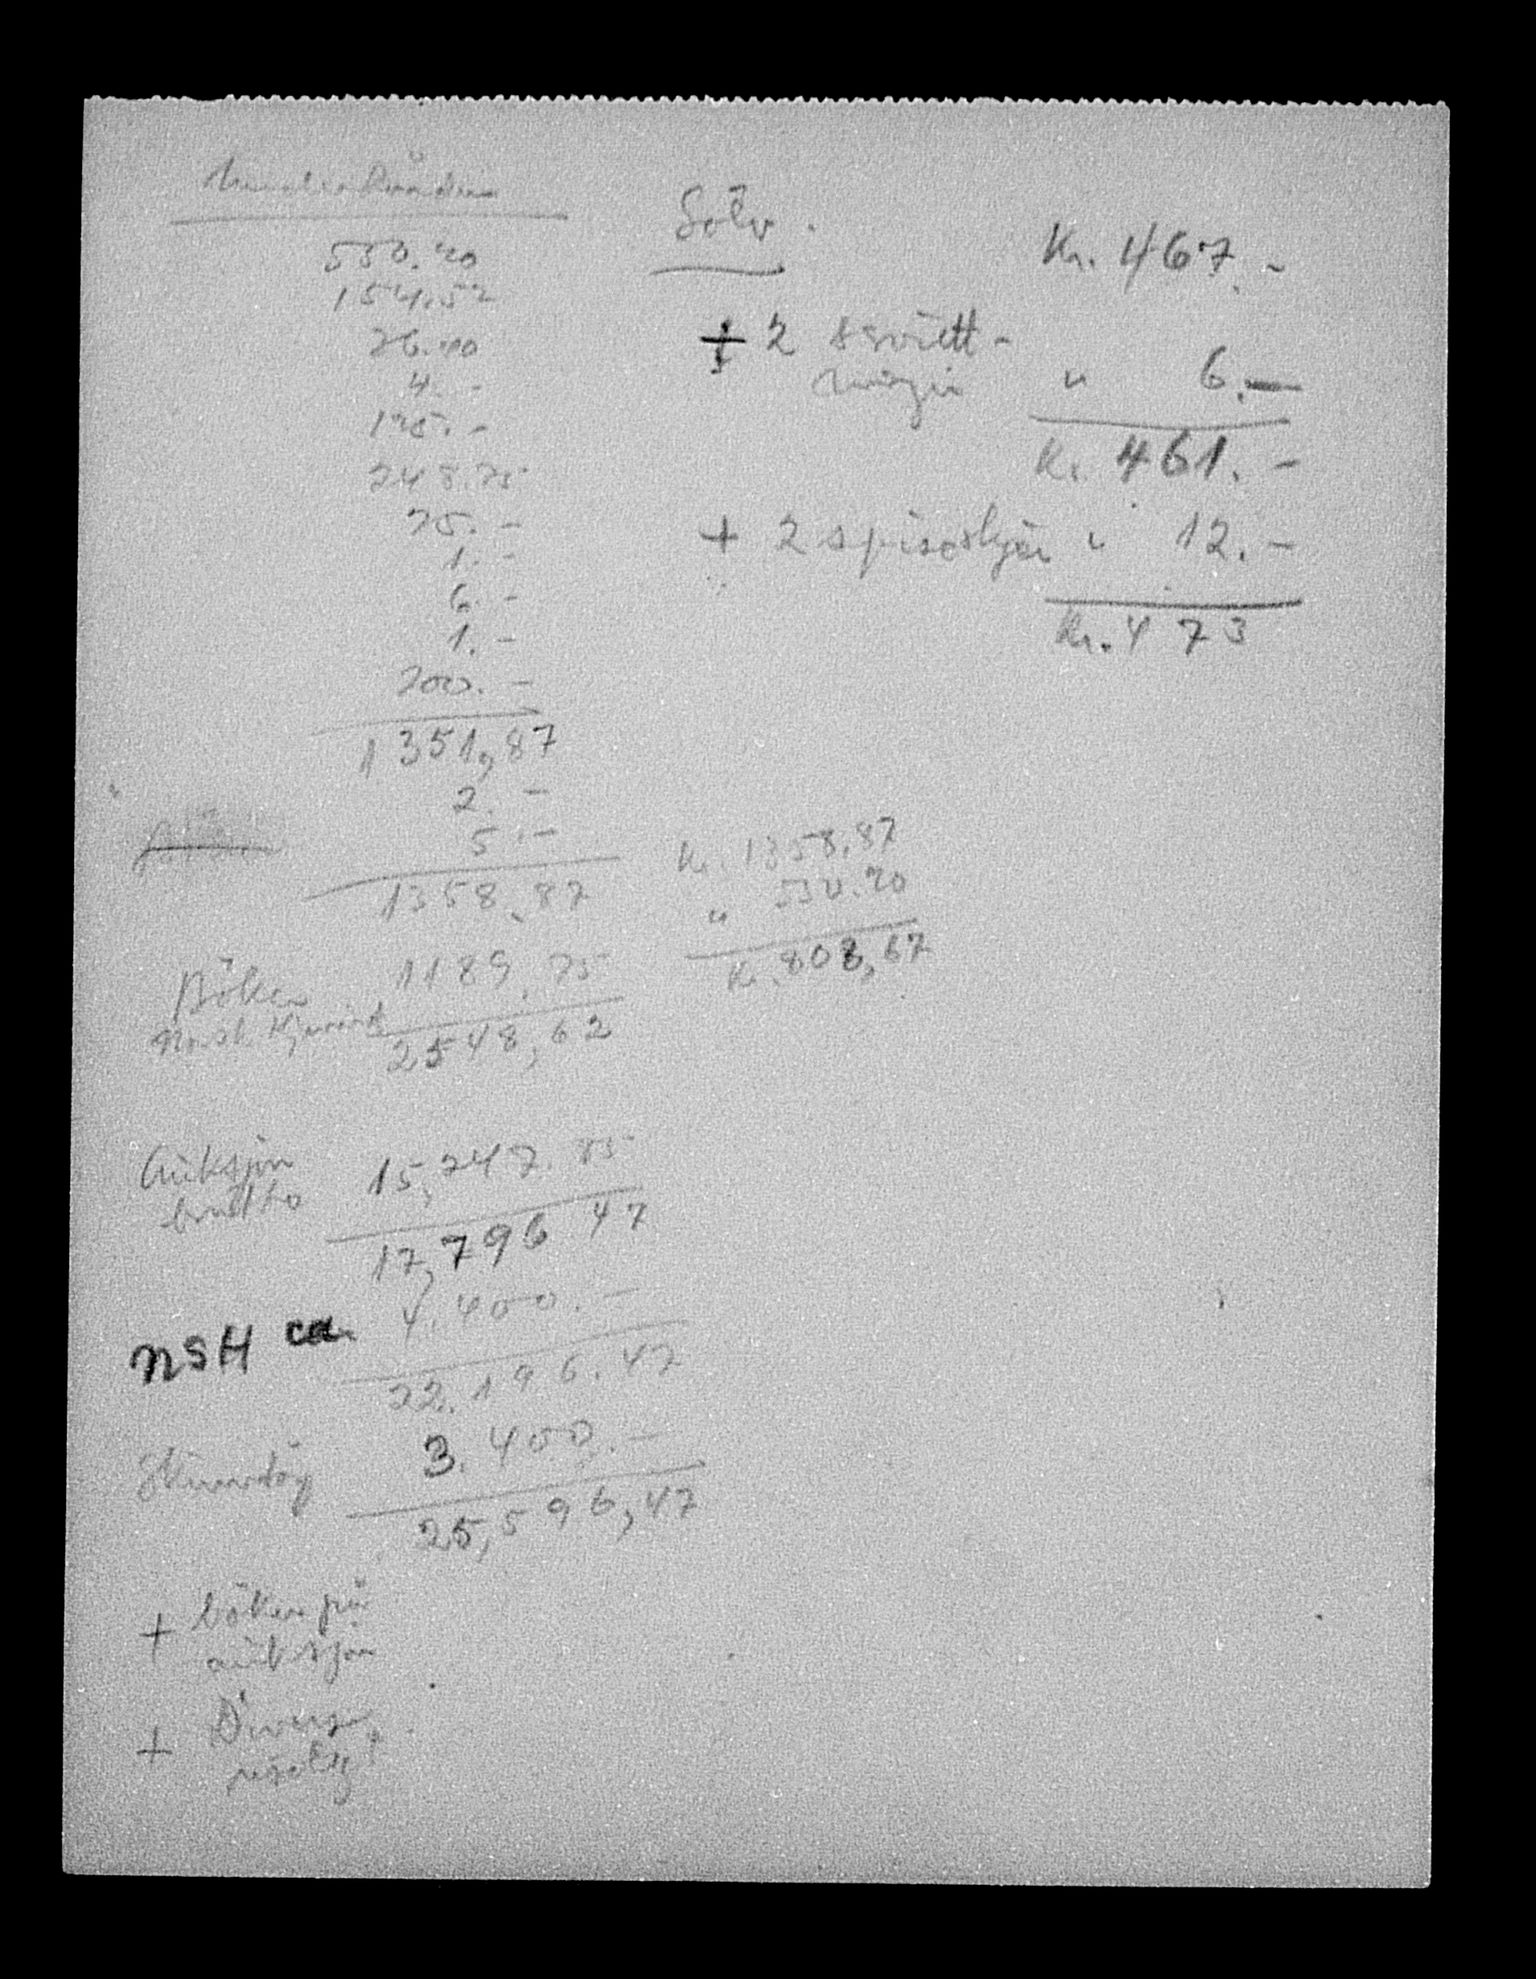 550.20
154.52
26.40
4.-
135.-
248.75
25.-
1.-
6.-
1.-
200.-
1351,87
2.-
5.-
1358,87
Böker 1189.75
Norsk 2548,62
Auksjon
brutto 15,247.85
17,796 47
NSH ca 4.400.-
22.196.47
3.400.-
25,596,47
+ böker på
auksjon
+ Diverse
Sölv. Kr. 467.-
+ 2 " 6.-
Kr. 461.-
+ 2 spiseskjer " 12.-
Kr. 473
Kr. 1358,87
" 550.20
Kr. 808,67